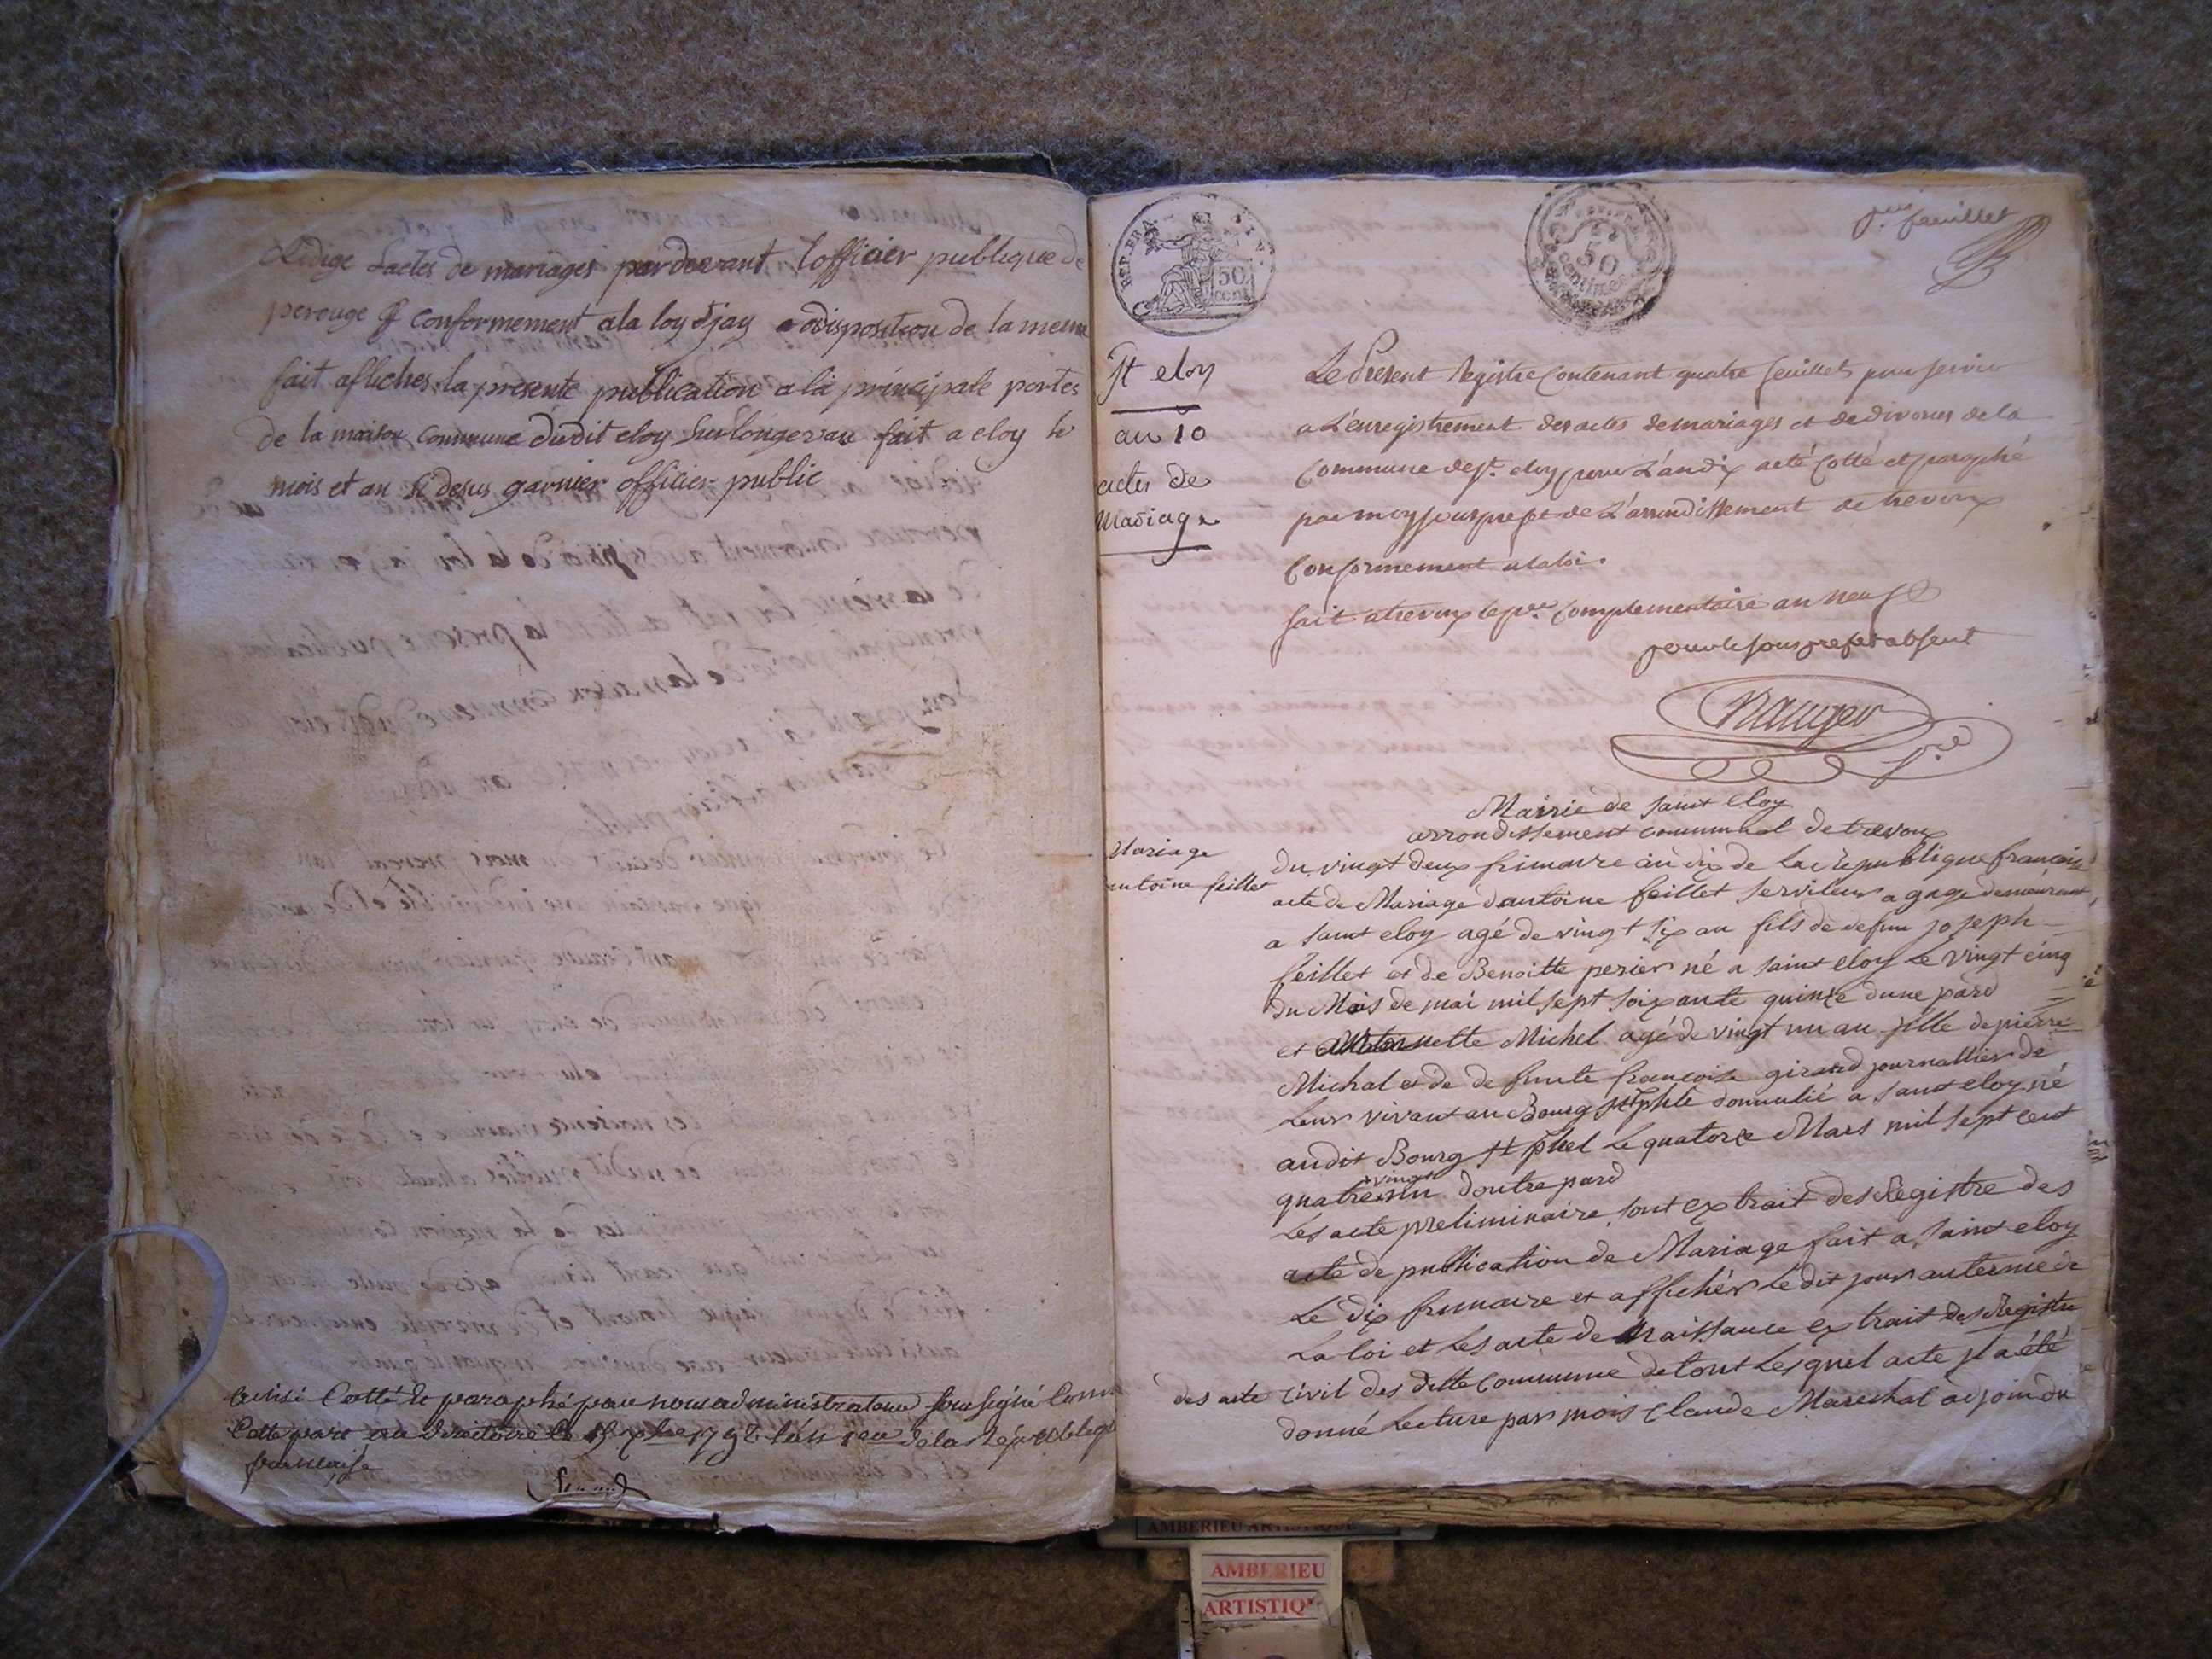 Rédige Lactes de mariages pardevant lofficier publique de
perouge conformement ala loy & jay disposition de la meme
fait afficher la presente publication a la principale portes
de la maison commune dudit eloy Sur longevan fait a eloy le
mois et an Si desus garnier officier public
ainsi Cotté & paraphé par nous administrateur soussigné
Cotte part au directoire le 15 xbre 1792 l'an 1er de la Republique
francaise
REP. FRA.
50
cent
50
centimes
pr. feuillet
St eloy
an 10
actes de
Mariage
Le Present Registre Contenant quatre feuillets pour servir
a L'enregistrement des actes de mariages et de divorces de la
Commune de St. eloy pour L'an dix a été Cotté et paraphé
par moy sous prefet de L'arrondissement de trevoux
Conformement a la loi.
fait a trevoux le pr. Complementaire an neuf
pour le sous prefet absent
Mairie de saint Eloy
arrondissement communal de trevoux
Mariage
antoine feillet
du vingt deux frimaire an dix de la republique française
acte de Mariage dantoine feillet Serviteur a gage demeurant
a saint eloy agé de vingt six an fils de defun joseph
feillet et de Benoitte perier né a saint eloy le vingt cinq
du Mois de mai mil sept soixante quinze dune pard
et antoinette Michel agé de vingt un an fille de pierre
Michal et de defunte francoise girard journallier de
leur vivant au Bourg St phle domicilié a saint eloy né
audit Bourg St phel le quatorze Mars mil sept cent
quatre vingt un doutre pard
Les acte preliminaire sont extrait des Registre des
acte de publication de Mariage fait a saint eloy
Le dix frimaire et affichér Le dit jour au terme de
La loi et Les acte de Naissance extrait des Registre
des acte Civil des ditte Commune de tout Lesquel acte il a été
donné Lecture par mois Claude Marechal adjoin du
AMBERIEU ARTISTIQUE
AMBERIEU
ARTISTIQ